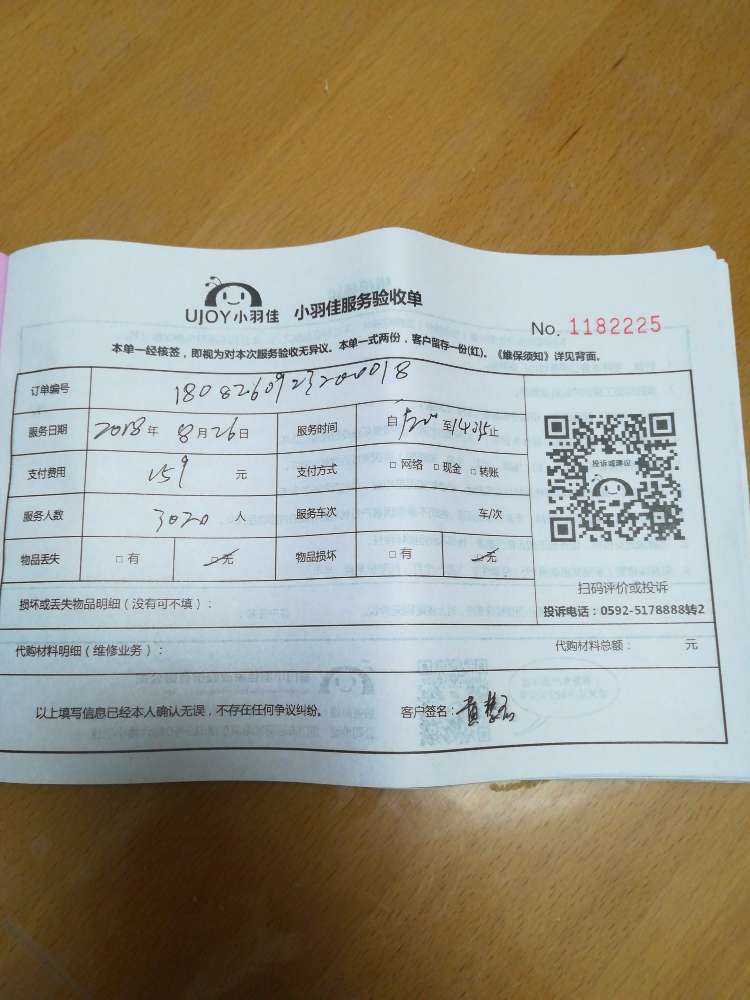 UJOY小羽佳 小羽佳服务验收单
No. 1182225
本单一经核签，即视为对本次服务验收无异议。本单一式两份，客户留存一份(红)。《维保须知》详见背面。
订单编号
服务日期 2018年 8月26日 服务时间 自 至 止
支付费用 159 元 支付方式 □网络 □现金 □转账
服务人数 3020 人 服务车次 车/次
物品丢失 □有 □无 物品损坏 □有 □无
投诉或建议
扫码评价或投诉
损坏或丢失物品明细（没有可不填）：
投诉电话：0592-5178888转2
代购材料明细（维修业务）： 代购材料总额： 元
以上填写信息已经本人确认无误，不存在任何争议纠纷。 客户签名：黄